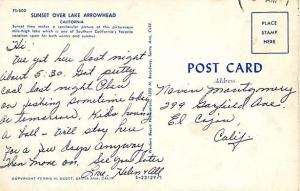 FS-600
SUNSET OVER LAKE ARROWHEAD
CALIFORNIA
Sunset time makes a spectacular picture of this picturesque
mile-high lake which is one of Southern California's favorite
vacation spots for both winter and summer.
Hi!
We got here last night
about 5:30. Got pretty
cool last night
on fishing sometime today
or tomorrow. Kids having
a ball - Will stay here
for a few days Anyway
Then move on. See you later
Love, Helen & All
COPYRIGHT FERRIS H. SCOTT, SANTA ANA, CALIF.
PLACE
STAMP
HERE
POST CARD
Address
Montgomery
299 Garfield Ave.
El Cajon,
Calif.